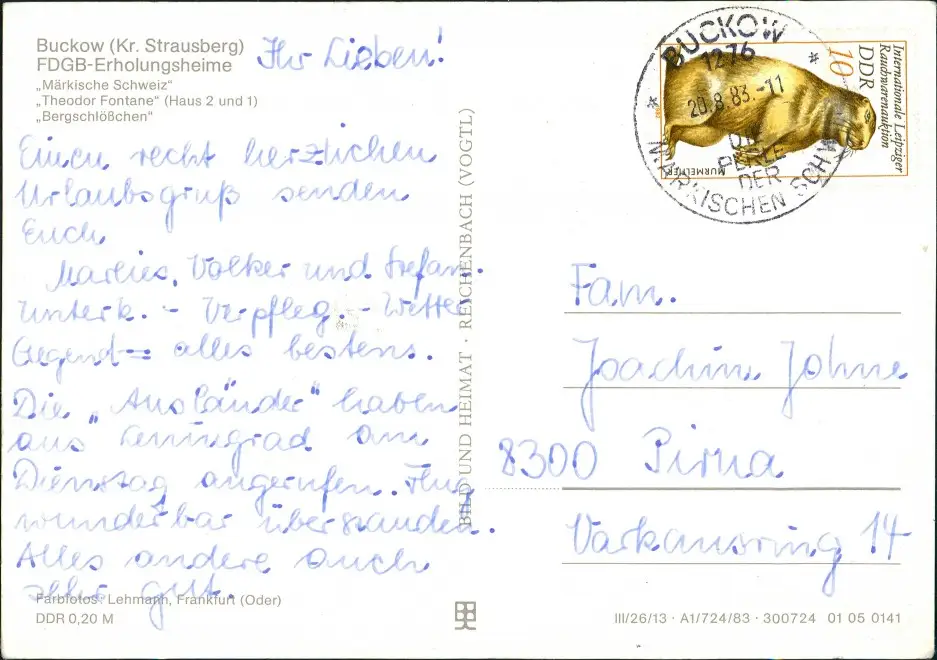 Buckow (Kr. Strausberg)
FDGB-Erholungsheime
„Märkische Schweiz“
„Theodor Fontane“ (Haus 2 und 1)
„Bergschlößchen“
Ihr Lieben!
Einen recht herzlichen
Urlaubsgruß senden
Euch
Marlies, Volker und Stefan.
Unterk. - Verpfleg. - Wetter
Gegend = alles bestens.
Die „Ausländer“ haben
aus Leningrad am
Dienstag angerufen. Flug
wunderbar überstanden.
Alles andere auch
sehr gut.
Farbfotos: Lehmann, Frankfurt (Oder)
DDR 0,20 M
BILD UND HEIMAT · REICHENBACH (VOGTL)
BUCKOW
1276
20.8.83.-11
DIE
PERLE
DER
MÄRKISCHEN SCHWEIZ
Internationale Leipziger
Rauchwarenauktion
DDR
10
MURMELTIER
Fam.
Joachim Johne
8300 Pirna
Varkausring 14
III/26/13 · A1/724/83 · 300724 01 05 0141